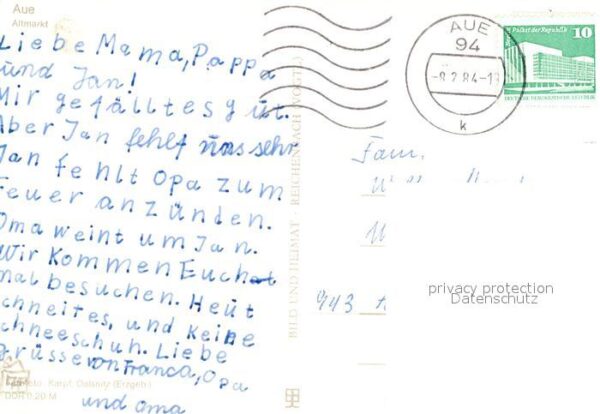 Aue
Altmarkt
Liebe Mama, Pappa
und Jan!
Mir gefällt es gut.
Aber Jan fehlt uns sehr
Jan fehlt Opa zum
Feuer anzünden.
Oma weint um Jan.
Wir Kommen Euch
mal besuchen. Heut
schneites, und Keine
schneeschuh. Liebe
grüsse von Franca, Opa
und oma
DDR 0,20 M
BILD UND HEIMAT · REICHENBACH (VOGTL)
AUE
94
-8.2.84-
k
Palast der Republik
10
DEUTSCHE DEMOKRATISCHE REPUBLIK
Fam.
943
privacy protection
Datenschutz